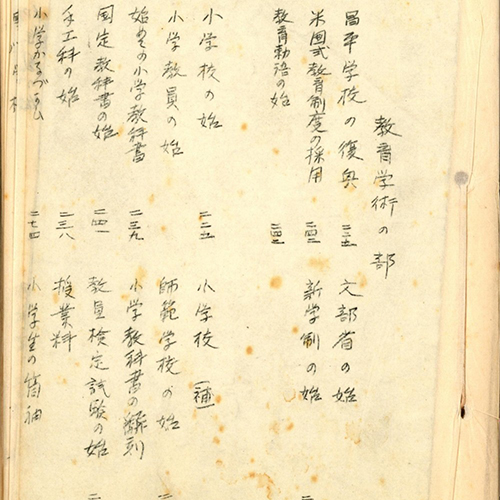 教育学術の部
昌平学校の復興 二三五 文部省の始
米国式教育制度の採用 二四二 新学制の始
教育勅語の始
小学校の始 二二五 小学校(補)
小学教員の始 師範学校の始
始めての小学教科書 二三九 小学教科書の飜刻
国定教科書の始 二四一 教員検定試験の始
手工科の始 二三八 授業料
小学かなづかひ 二七四 小学生の筒袖